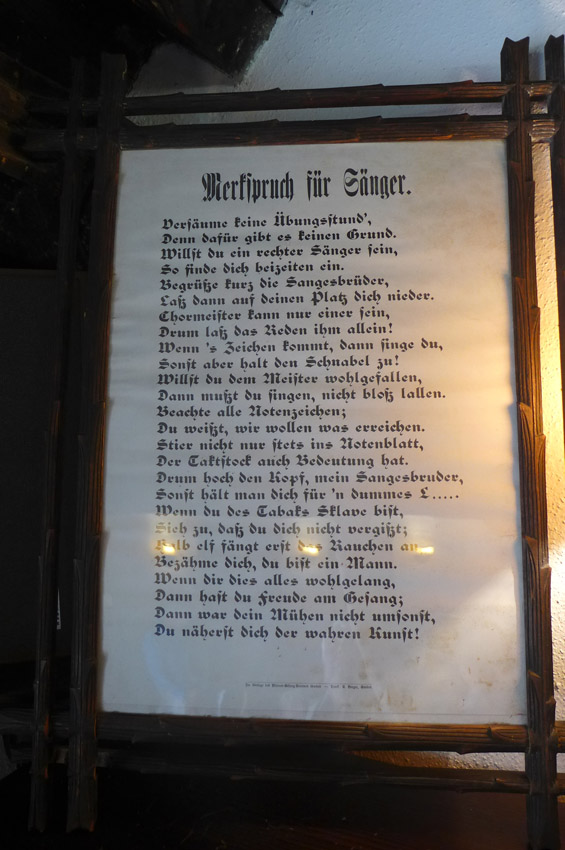 Merkspruch für Sänger.
Versäume keine Übungsstund',
Denn dafür gibt es keinen Grund.
Willst du ein rechter Sänger sein,
So finde dich beizeiten ein.
Begrüße kurz die Sangesbrüder,
Laß dann auf deinen Platz dich nieder.
Chormeister kann nur einer sein,
Drum laß das Reden ihm allein!
Wenn 's Zeichen kommt, dann singe du,
Sonst aber halt den Schnabel zu!
Willst du dem Meister wohlgefallen,
Dann mußt du singen, nicht bloß lallen.
Beachte alle Notenzeichen;
Du weißt, wir wollen was erreichen.
Stier nicht nur stets ins Notenblatt,
Der Taktstock auch Bedeutung hat.
Drum hoch den Kopf, mein Sangesbruder,
Sonst hält man dich für 'n dummes L.....
Wenn du des Tabaks Sklave bist,
Sieh zu, daß du dich nicht vergißt;
Halb elf fängt erst das Rauchen an.
Bezähme dich, du bist ein Mann.
Wenn dir dies alles wohlgelang,
Dann hast du Freude am Gesang;
Dann war dein Mühen nicht umsonst,
Du näherst dich der wahren Kunst!